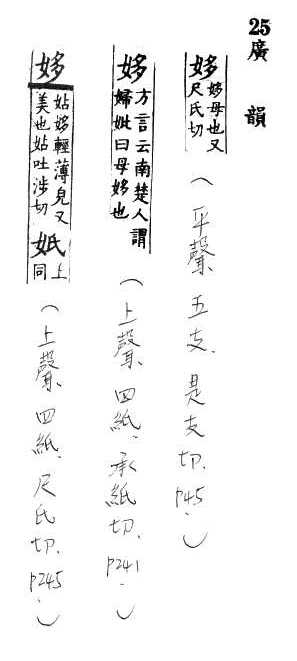 25
廣韻
姼 姼母也又
尺氏切
（平聲、五支、是支切、P45.）
姼 方言云南楚人謂
婦妣曰母姼也
（上聲、四紙、承紙切、P241.）
姼 姑姼輕薄皃又
美也姑吐涉切 㛂 上
同
（上聲、四紙、尺氏切、P245.）